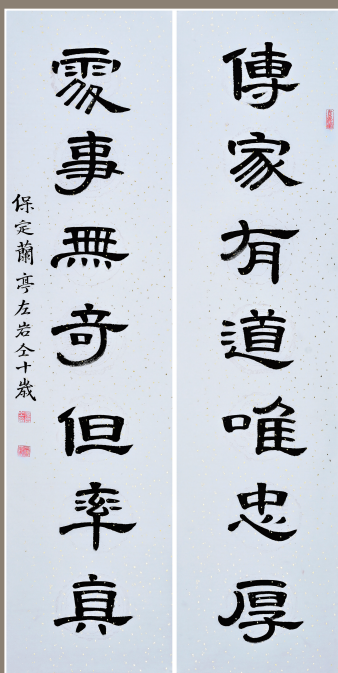 傳家有道唯忠厚
處事無奇但率真
保定蘭亭左岩仝十歲